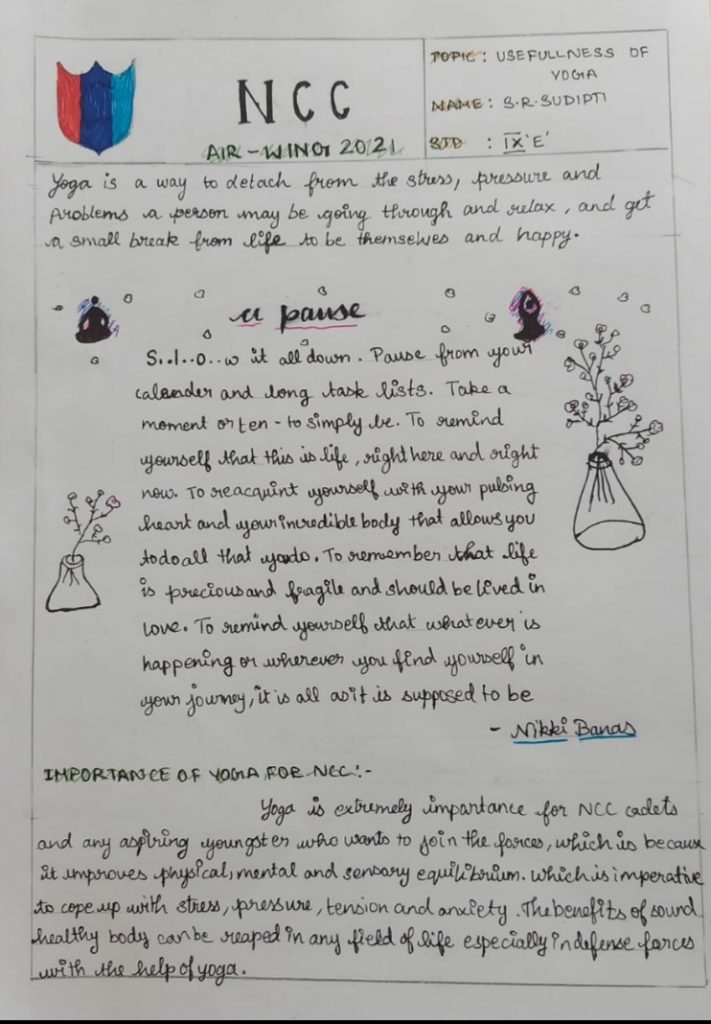 NCC
AIR - WING 2021
TOPIC : USEFULLNESS OF
YOGA
NAME : S.R.SUDIPTI
STD : IX 'E'
Yoga is a way to detach from the stress, pressure and
Problems a person may be going through and relax, and get
a small break from life to be themselves and happy.
a pause
S..l..o..w it all down. Pause from your
calander and long task lists. Take a
moment or ten - to simply be. To remind
yourself that this is life, right here and right
now. To reacquint yourself with your pulsing
heart and your incredible body that allows you
to do all that you do. To remember that life
is precious and fragile and should be lived in
love. To remind yourself that whatever is
happening or wherever you find yourself in
your journey, it is all as it is supposed to be
- Nikki Banas
IMPORTANCE OF YOGA FOR NCC:-
Yoga is extremely importance for NCC cadets
and any aspiring youngster who wants to join the forces, which is because
it improves physical, mental and sensory equilibrium. which is imperative
to cope up with stress, pressure, tension and anxiety. The benefits of sound
healthy body can be reaped in any field of life especially in defense forces
with the help of yoga.